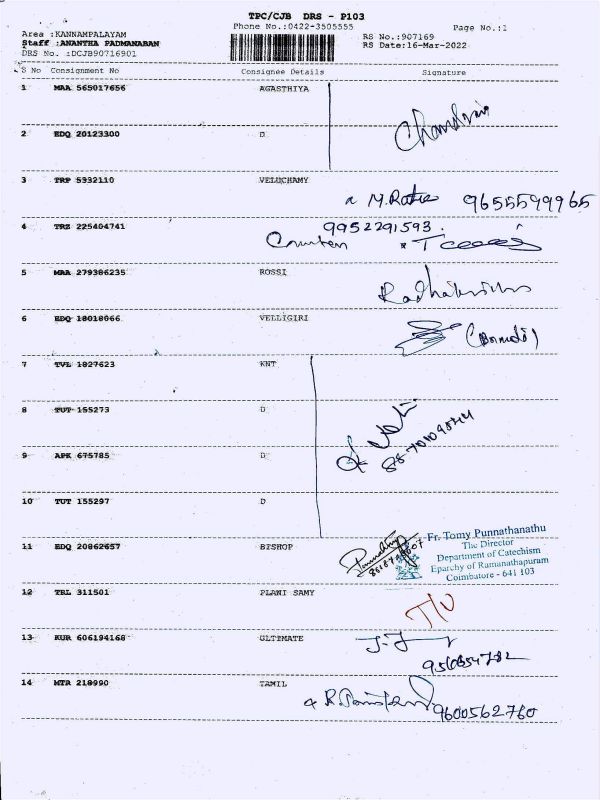 TPC/CJB DRS - P103
Phone No.:0422-3505555
Page No.:1
Area :KANNAMPALAYAM
Staff :ANANTHA PADMANABAN
DRS No. :DCJB90716901
RS No.:907169
RS Date:16-Mar-2022
S No Consignment No Consignee Details Signature
1 MAA 565017656 AGASTHIYA
2 EDQ 20123300 D
3 TRP 5332110 VELUCHAMY
9655599965
9952291593.
4 TRZ 225404741
5 MAA 279386235 ROSSI
6 EDQ 18018066 VELLIGIRI
7 TVL 1827623 KNT
8 TUT 155273 D
9 APK 675785 D
10 TUT 155297 D
11 EDQ 20862657 BISHOP
Fr. Tomy Punnathanathu
The Director
Department of Catechism
Eparchy of Ramanathapuram
Coimbatore - 641 103
12 TBL 311501 PLANI SAMY
13 KUR 606194168 ULTIMATE
14 MTR 218990 TAMIL
9600562760